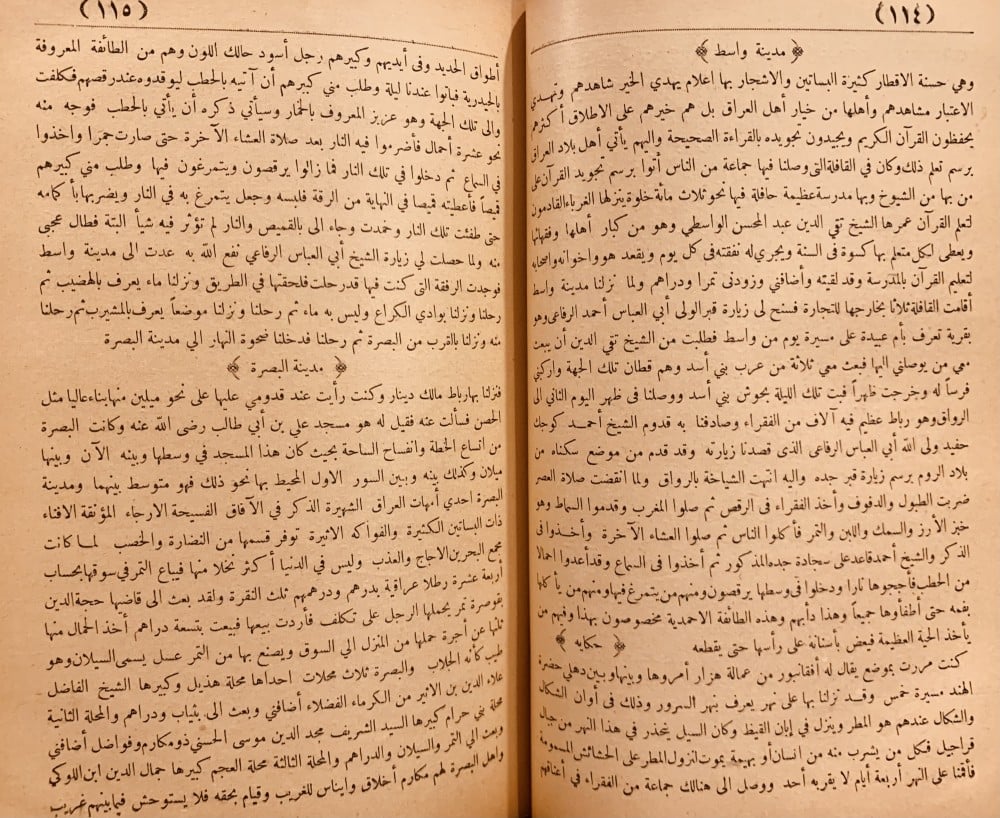 (١١٤)
﴿ مدينة واسط ﴾
وهي حسنة الاقطار كثيرة البساتين والاشجار بها اعلام يهدي الخير شاهدهم وتهدي
الاعتبار مشاهدهم وأهلها من خيار أهل العراق بل هم خيرهم على الاطلاق أكثرهم
يحفظون القرآن الكريم ويجيدون تجويده بالقراءة الصحيحة واليهم يأتي أهل بلاد العراق
برسم تعلم ذلك وكان في القافلة التي وصلنا فيها جماعة من الناس أتوا برسم تجويد القرآن على
من بها من الشيوخ وبها مدرسة عظيمة حافلة فيها نحو ثلاث مائة خلوة ينزلها الغرباء القادمون
لتعلم القرآن عمرها الشيخ تقي الدين عبد المحسن الواسطي وهو من كبار أهلها وفقهائها
ويعطى لكل متعلم بها كسوة في السنة ويجري له نفقته في كل يوم ويقعد هو واخوانه واصحابه
لتعليم القرآن بالمدرسة وقد لقيته وأضافني وزودنى تمرا ودراهم ولما نزلنا مدينة واسط
أقامت القافلة ثلاثا بخارجها للتجارة فسنح لى زيارة قبر الولى أبي العباس أحمد الرفاعى وهو
بقرية تعرف بأم عبيدة على مسيرة يوم من واسط فطلبت من الشيخ تقي الدين أن يبعث
معي من يوصلني اليها فبعث معي ثلاثة من عرب بني أسد وهم قطان تلك الجهة واركبني
فرساً له وخرجت ظهراً فبت تلك الليلة بحوش بني أسد ووصلنا فى ظهر اليوم الثاني الى
الرواق وهو رباط عظيم فيه آلاف من الفقراء وصادفنا به قدوم الشيخ أحمد كوجك
حفيد ولى الله أبي العباس الرفاعى الذى قصدنا زيارته وقد قدم من موضع سكناه من
بلاد الروم برسم زيارة قبر جده واليه انتهت الشياخة بالرواق ولما انقضت صلاة العصر
ضربت الطبول والدفوف وأخذ الفقراء فى الرقص ثم صلوا المغرب وقدموا السماط وهو
خبز الأرز والسمك واللبن والتمر فأكلوا الناس ثم صلوا العشاء الآخرة وأخذوا فى
الذكر والشيخ أحمد قاعد على سجادة جده المذكور ثم أخذوا فى السماع وقد أعدوا احمالا
من الحطب فأججوها نارا ودخلوا فى وسطها يرقصون ومنهم من يتمرغ فيها ومنهم من يأكلها
بفمه حتى أطفأوها جميعاً وهذا دأبهم وهذه الطائفة الاحمدية مخصوصون بهذا وفيهم من
يأخذ الحية العظيمة فيعض بأسنانه على رأسها حتى يقطعه ﴿ حكايه ﴾
كنت مررت بموضع يقال له أفقانبور من عمالة هزار أمروها وبينها وبين دهلي حضرة
الهند مسيرة خمس وقد نزلنا بها على نهر يعرف بنهر السرور وذلك فى أوان الشكال
والشكال عندهم هو المطر وينزل في إبان القيظ وكان السيل ينحدر في هذا النهر من جبال
قراجيل فكل من يشرب منه من انسان أو بهيمة يموت لنزول المطر على الحشائش المسمومة
فأقمنا على النهر أربعة أيام لا يقربه أحد ووصل الى هنالك جماعة من الفقراء في أعناقهم
(١١٥)
أطواق الحديد وفى أيديهم وكبيرهم رجل أسود حالك اللون وهم من الطائفة المعروفة
بالحيدرية فباتوا عندنا ليلة وطلب مني كبيرهم أن آتيه بالحطب ليوقدوه عند رقصهم فكلفت
والى تلك الجهة وهو عزيز المعروف بالخمار وسيأتي ذكره أن يأتي بالحطب فوجه منه
نحو عشرة أحمال فأضرموا فيه النار بعد صلاة العشاء الآخرة حتى صارت جمرا واخذوا
في السماع ثم دخلوا في تلك النار فما زالوا يرقصون ويتمرغون فيها وطلب مني كبيرهم
قيصاً فأعطيته قميصا في النهاية من الرقة فلبسه وجعل يتمرغ به في النار ويضربها بأكمامه
حتى طفئت تلك النار وخمدت وجاء الى بالقميص والنار لم تؤثر فيه شيأ البتة فطال عجبى
منه ولما حصلت لى زيارة الشيخ أبي العباس الرفاعي نفع الله به عدت الى مدينة واسط
فوجدت الرفقة التى كنت فيها قد رحلت فلحقتها في الطريق ونزلنا ماء يعرف بالهضيب ثم
رحلنا ونزلنا بوادي الكراع وليس به ماء ثم رحلنا ونزلنا موضعاً يعرف بالمشيرب ثم رحلنا
منه ونزلنا بالقرب من البصرة ثم رحلنا فدخلنا ضحوة النهار الي مدينة البصرة
﴿ مدينة البصرة ﴾
فنزلنا بها رباط مالك دينار وكنت رأيت عند قدومي عليها على نحو ميلين منها بناء عاليا مثل
الحصن فسألت عنه فقيل له هو مسجد علي بن أبي طالب رضى الله عنه وكانت البصرة
من اتساع الخطة وانفساح الساحة بحيث كان هذا المسجد في وسطها وبينه الآن وبينها
ميلان وكذلك بينه وبين السور الاول المحيط بها نحو ذلك فهو متوسط بينهما ومدينة
البصرة احدي أمهات العراق الشهيرة الذكر في الآفاق الفسيحة الارجاء المؤنقة الافناء
ذات البساتين الكثيرة والفواكه الاثيرة توفر قسمها من النضارة والخصب لما كانت
مجمع البحرين الاجاج والعذب وليس في الدنيا أكثر نخلا منها فيباع التمر في سوقها بحساب
أربعة عشرة رطلا عراقية بدرهم ودرهمهم ثلث النقرة ولقد بعث الى قاضيها حجة الدين
بقوصرة تمر يحملها الرجل على تكلف فأردت بيعها فبيعت بتسعة دراهم أخذ الحمال منها
ثلثها عن أجرة حملها من المنزل الي السوق ويصنع بها من التمر عسل يسمى السيلان وهو
طيب كأنه الجلاب والبصرة ثلاث محلات احداها محلة هذيل وكبيرها الشيخ الفاضل
علاء الدين بن الاثير من الكرماء الفضلاء أضافني وبعث الى بثياب ودراهم والمحلة الثانية
محلة بني حرام كبيرها السيد الشريف مجد الدين موسى الحسني ذو مكارم وفواضل أضافني
وبعث الي التمر والسيلان والدراهم والمحلة الثالثة محلة العجم كبيرها جمال الدين ابن اللوكي
واهل البصرة لهم مكارم أخلاق وايناس للغريب وقيام بحقه فلا يستوحش فيما بينهم غريب